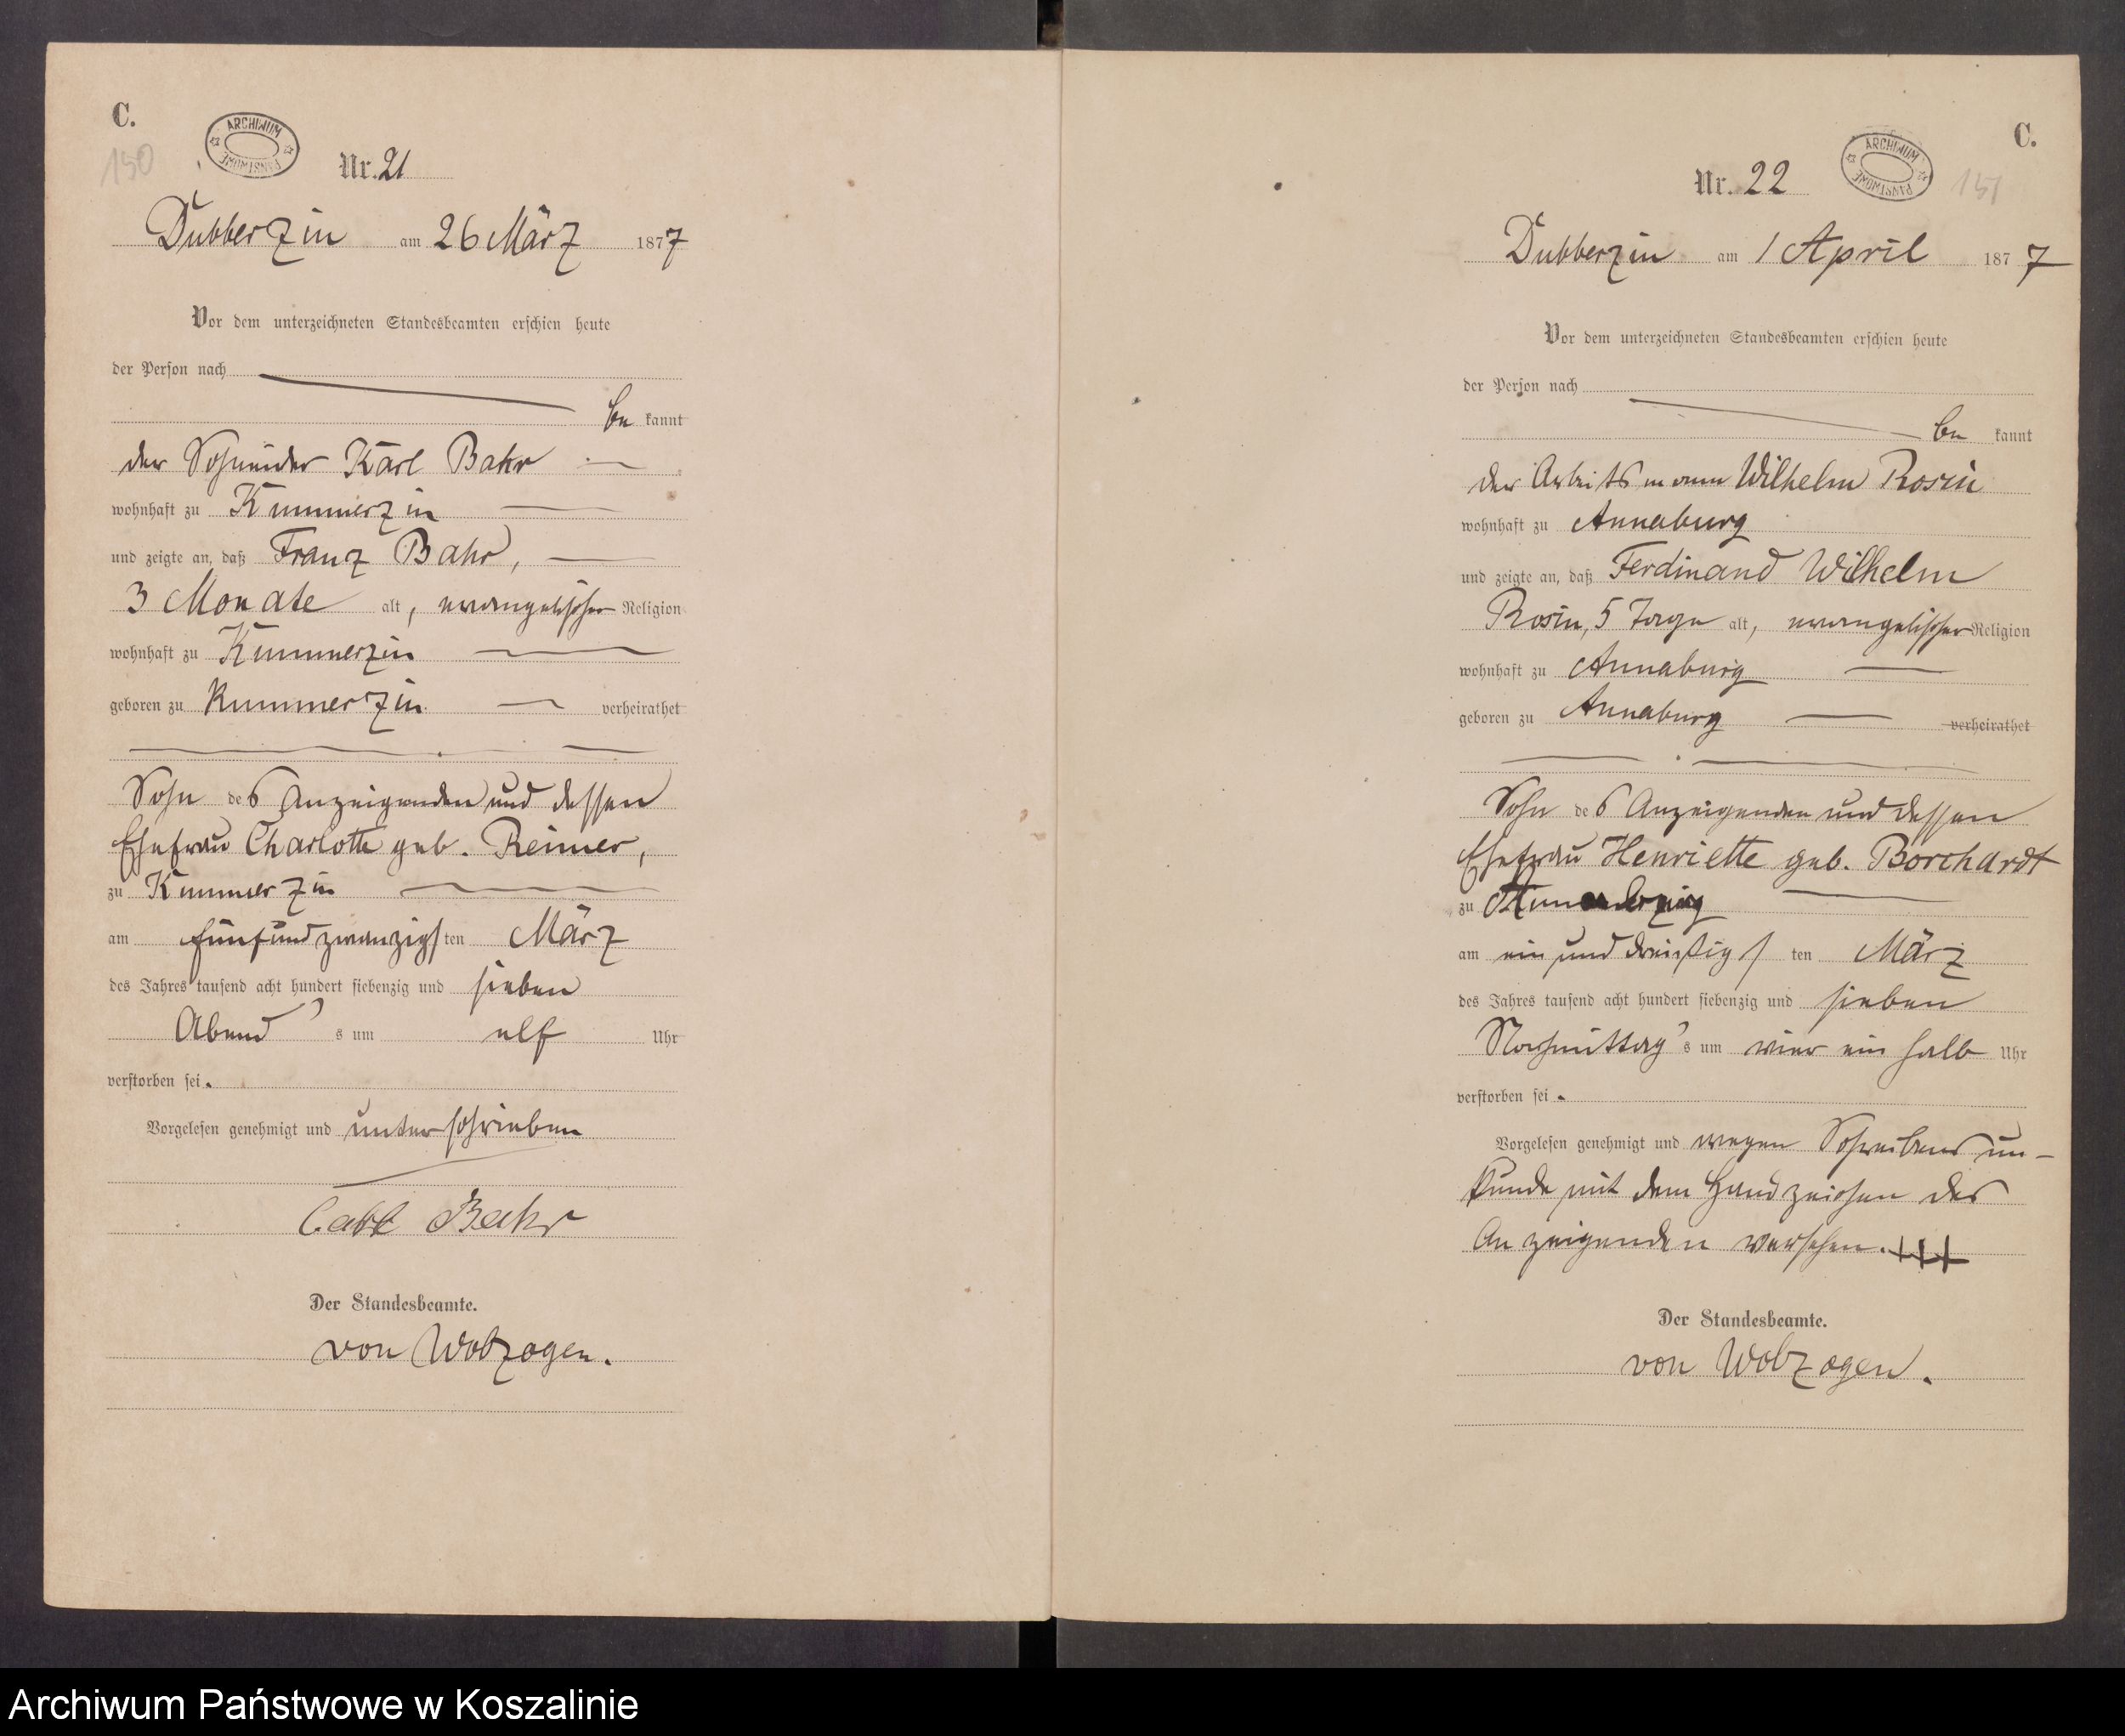 C.
150
ARCHIWUM PAŃSTWOWE
Nr. 21
Dubberzin am 26 März 1877
Vor dem unterzeichneten Standesbeamten erschien heute
der Person nach
be kannt
der Schneider Karl Bahr
wohnhaft zu Kummerzin
und zeigte an, daß Franz Bahr,
3 Monate alt, evangelischer Religion
wohnhaft zu Kummerzin
geboren zu Kummerzin verheirathet
Sohn des Anzeigenden und dessen
Ehefrau Charlotte geb. Reimer,
zu Kummerzin
am fünfundzwanzigsten März
des Jahres tausend acht hundert siebenzig und sieben
Abend s um elf Uhr
verstorben sei.
Vorgelesen genehmigt und unterschrieben
Carl Bahr
Der Standesbeamte.
von Wolzogen.
C.
Nr. 22
ARCHIWUM PAŃSTWOWE
151
Dubberzin am 1 April 1877
Vor dem unterzeichneten Standesbeamten erschien heute
der Person nach
be kannt
der Arbeitsmann Wilhelm Rosin
wohnhaft zu Annaburg
und zeigte an, daß Ferdinand Wilhelm
Rosin, 5 Tage alt, evangelischer Religion
wohnhaft zu Annaburg
geboren zu Annaburg verheirathet
Sohn des Anzeigenden und dessen
Ehefrau Henriette geb. Borchardt
zu
am ein und dreißigsten März
des Jahres tausend acht hundert siebenzig und sieben
Nachmittag s um vier ein halb Uhr
verstorben sei.
Vorgelesen genehmigt und wegen Schreibens un-
kunde mit dem Handzeichen des
Anzeigenden versehen. +++
Der Standesbeamte.
von Wolzogen.
Archiwum Państwowe w Koszalinie